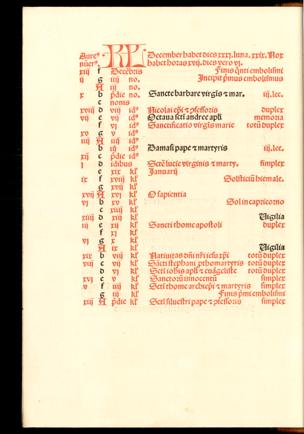 Aure⁹ KL December habet dies xxxi. luna. xxix. Nox
nũer⁹ habet horas xvij. dies vero vj.
xiij f Decẽbris Finis q̃nti embolismi
ij g iiij no. Incipit p̃mus embolismus
A iij no.
x b p̃die no. Sancte barbare virgĩs ⁊ mar. iij.lec.
c nonis
xviij d viij id⁹ Nicolai ep̃i ⁊ ꝓfessoris duplex
vij e vij id⁹ Octaua scti andree apl̃i memoria
f vj id⁹ Sanctificatio virgĩs marie totũ duplex
xv g v id⁹
iiij A iiij id⁹
b iij id⁹ Damasi pape ⁊ martyris iij.lec.
xij c p̃die id⁹
j d idibus Sctẽ lucie virginis ⁊ martyr. simplex
e xix kl̃ Januarij
ix f xviij kl̃ Solsticiũ hiemale.
g xvij kl̃
xvij A xvj kl̃ O sapientia
vj b xv kl̃ Sol in capricorno
c xiiij kl̃
xiiij d xiij kl̃ Vigilia
iij e xij kl̃ Sancti thome apostoli duplex
f xj kl̃
xj g x kl̃
A ix kl̃ Vigilia
xix b viij kl̃ Natiuitas dñi nr̃i iesu xp̃i totũ duplex
viij c vij kl̃ Scti stephani ꝓthomartyris totũ duplex
d vj kl̃ Scti iohis apl̃i ⁊ euãgeliste totũ duplex
xvj e v kl̃ Sanctorũ innocentũ simplex
v f iiij kl̃ Scti thome archiep̃i ⁊ martyris simplex
g iij kl̃ Finis p̃mi embolismi
xiij A p̃die kl̃ Scti siluestri pape ⁊ ꝓfessoris simplex